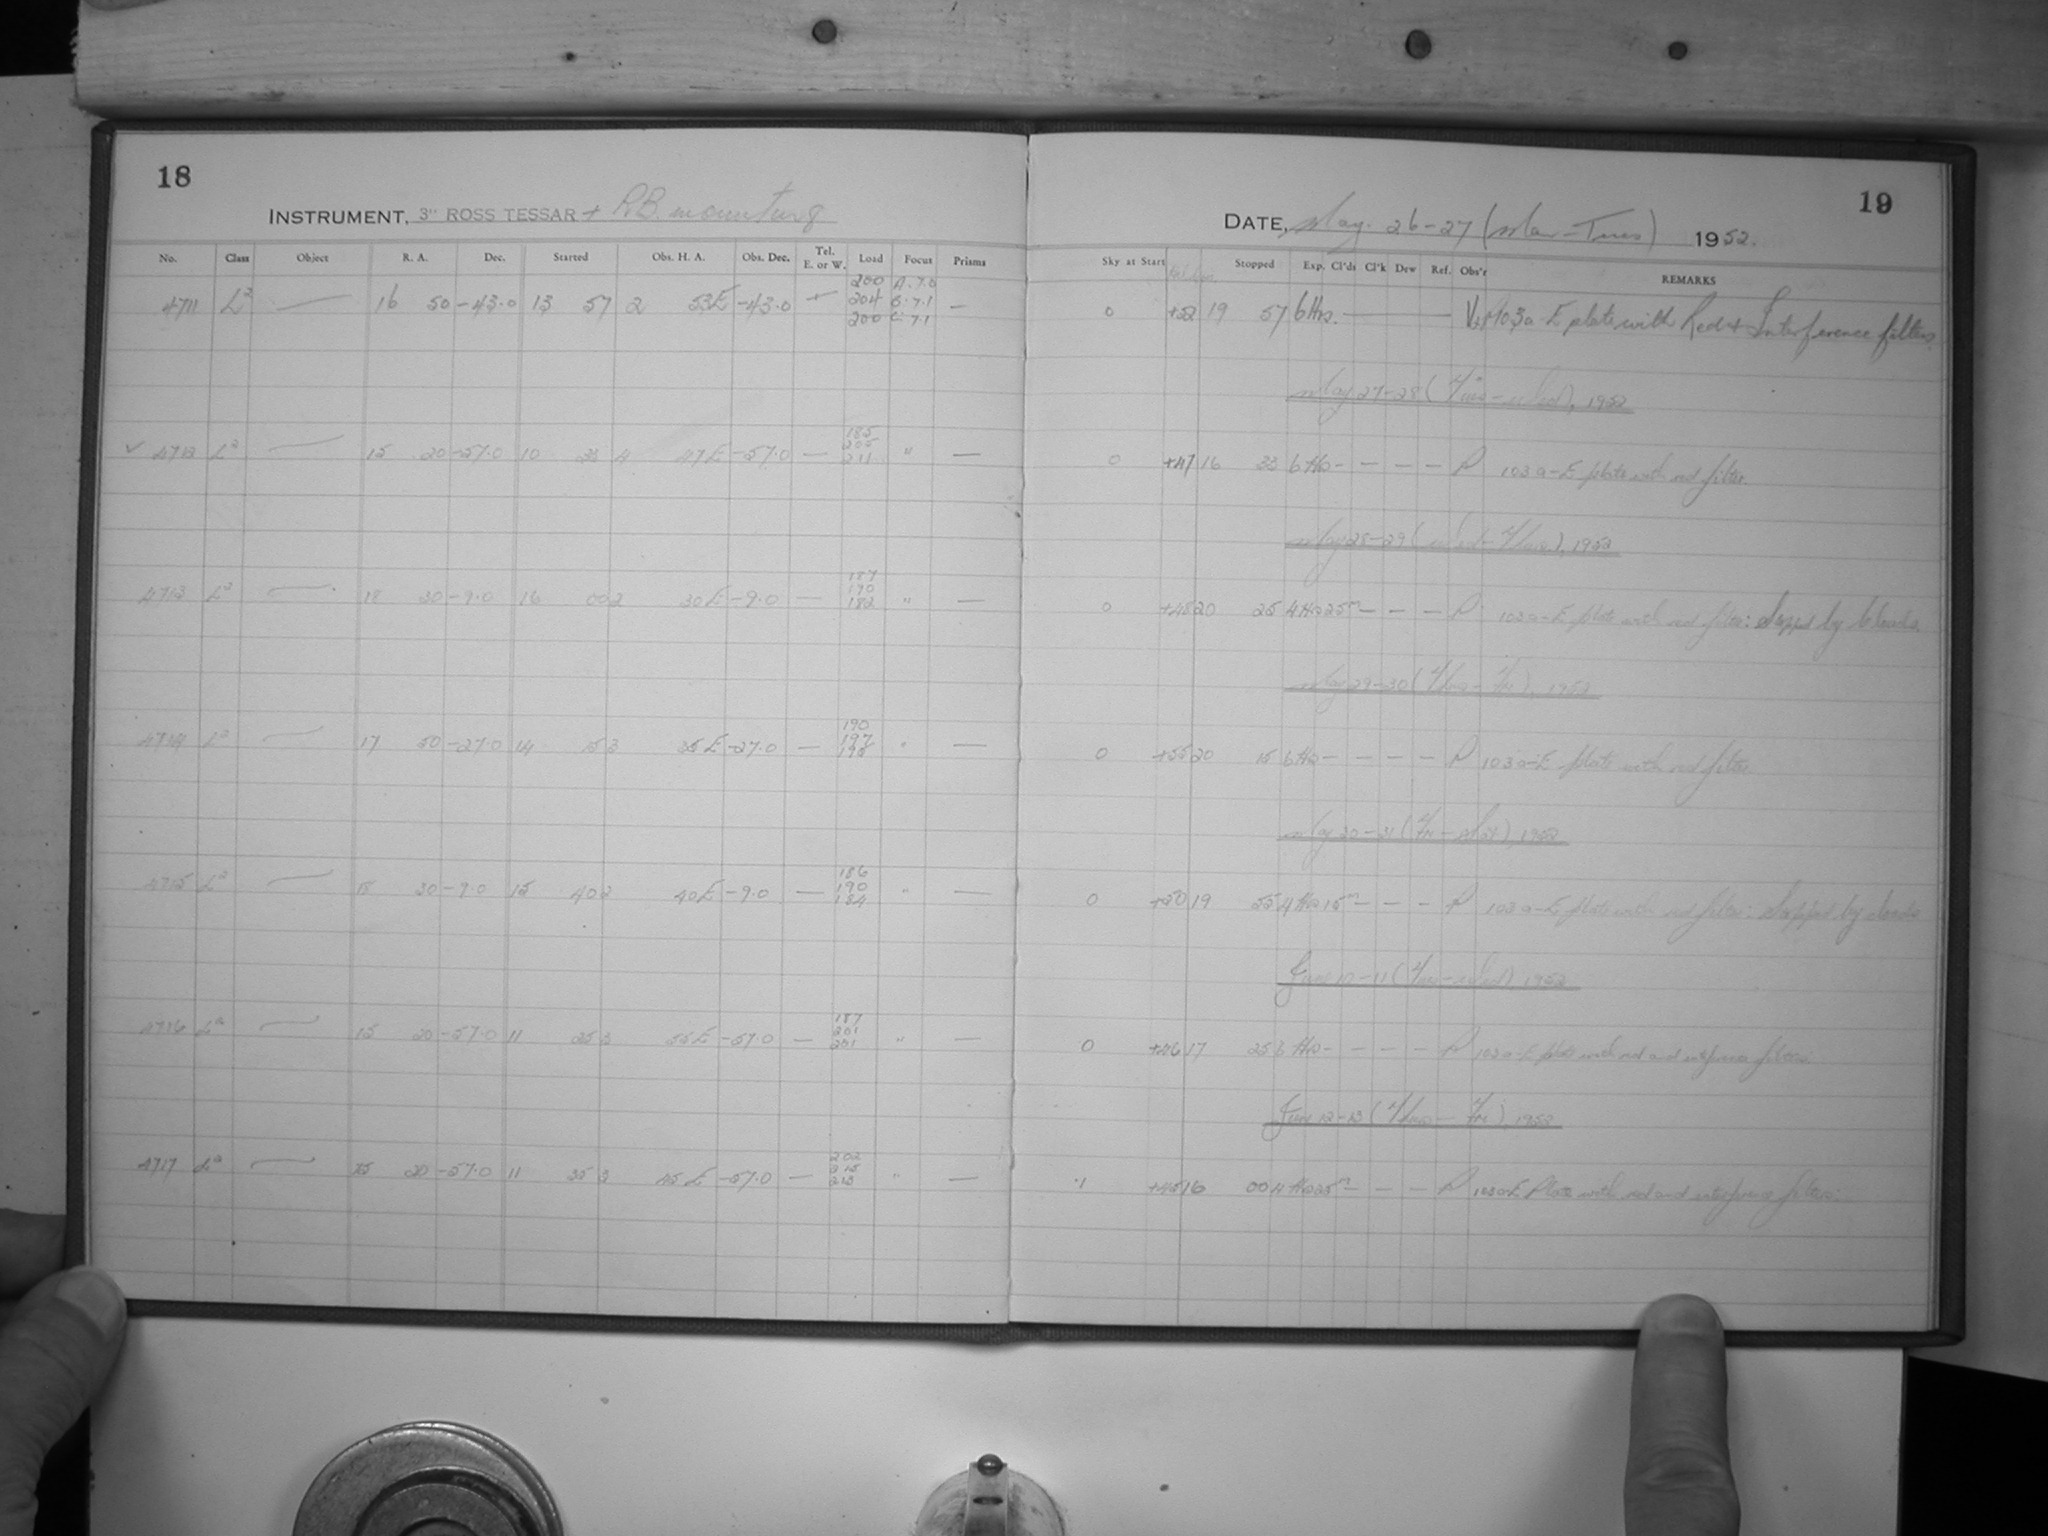 18
INSTRUMENT, 3" ROSS TESSAR + R.B. mounting
No. Class Object R. A. Dec. Started Obs. H. A. Obs. Dec. Tel. E. or W. Load Focus Prisms
4711 L² — 16 50 -43.0 13 57 2 53E -43.0 200 204 200 A. 7.0 B. 7.1 C. 7.1 —
✓ 4712 L² — 15 20 -57.0 10 33 4 47E -57.0 — 185 205 211 " —
4713 L² — 18 30 -9.0 16 00 2 30E -9.0 — 187 190 182 " —
4714 L² — 17 50 -27.0 14 15 3 35E -27.0 — 190 197 195 " —
4715 L² — 18 30 -9.0 15 40 2 40E -9.0 — 186 190 184 " —
4716 L² — 15 20 -57.0 11 25 3 55E -57.0 — 187 201 201 " —
4717 L² — 15 20 -57.0 11 35 3 45E -57.0 — 202 215 213 " —
19
DATE, May. 26-27 (Mon-Tues) 1952.
Sky at Start Stopped Exp. Cl'ds Cl'k Dew Ref. Obs'r REMARKS
0 +52 19 57 6 Hrs. — 103a-E plate with Red + Interference filters.
May 27-28 (Tues-Wed), 1952
0 +47 16 33 6 Hrs - - - - P 103a-E plate with red filter.
May 28-29 (Wed-Thurs.), 1952
0 +45 20 25 4 Hrs 25m - - - P 103a-E plate with red filter: stopped by clouds.
May 29-30 (Thurs-Fri), 1952
0 +55 20 15 6 Hrs - - - - P 103a-E plate with red filter
May 30-31 (Fri-Sat), 1952
0 +50 19 55 4 Hrs 15m - - - P 103a-E plate with red filter: Stopped by clouds
June 10-11 (Tues-Wed), 1952
0 +46 17 25 6 Hrs - - - - P 103a-E plate with red and interference filters.
June 12-13 (Thurs-Fri), 1952
.1 +45 16 00 4 Hrs 25m - - - P 103a-E Plate with red and interference filters.